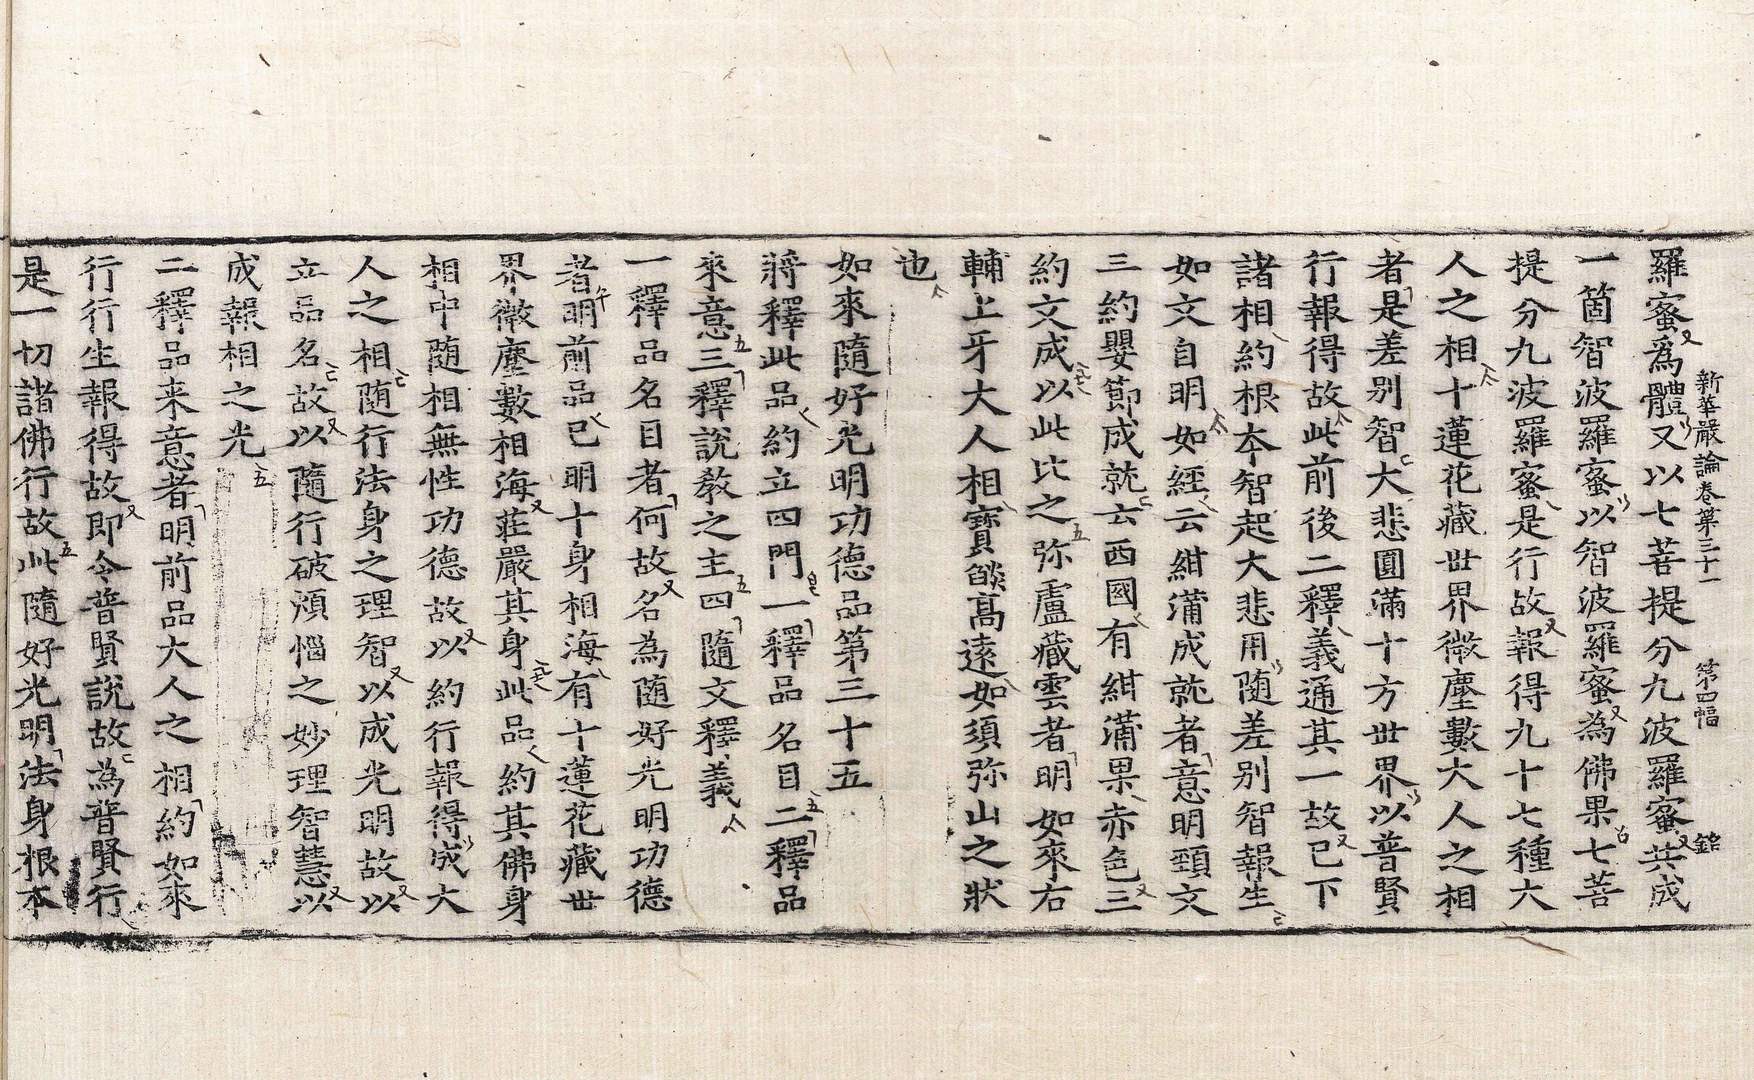 新華嚴論卷第三十一 第四幅
羅蜜為體又以七菩提分九波羅蜜共成
一箇智波羅蜜以智波羅蜜為佛果七菩
提分九波羅蜜是行故報得九十七種大
人之相十蓮花藏世界微塵數大人之相
者是差别智大悲圓滿十方世界以普賢
行報得故此前後二釋義通其一故已下
諸相約根本智起大悲用随差别智報生
如文自明如經云紺蒲成就者意明頸文
三約嬰節成就云西國有紺蒲果赤色三
約文成以此比之弥盧藏雲者明如來右
輔上牙大人相寶燄髙遠如須弥山之狀
也
如來隨好光明功德品第三十五
將釋此品約立四門一釋品名目二釋品
來意三釋說教之主四隨文釋義
一釋品名目者何故名為随好光明功德
者明前品已明十身相海有十蓮花藏世
界微塵數相海莊嚴其身此品約其佛身
相中随相無性功德故以約行報得成大
人之相随行法身之理智以成光明故以
立品名故以隨行破煩惱之妙理智慧以
成報相之光
二釋品来意者明前品大人之相約如來
行行生報得故即令普賢說故為普賢行
是一切諸佛行故此隨好光明法身根本